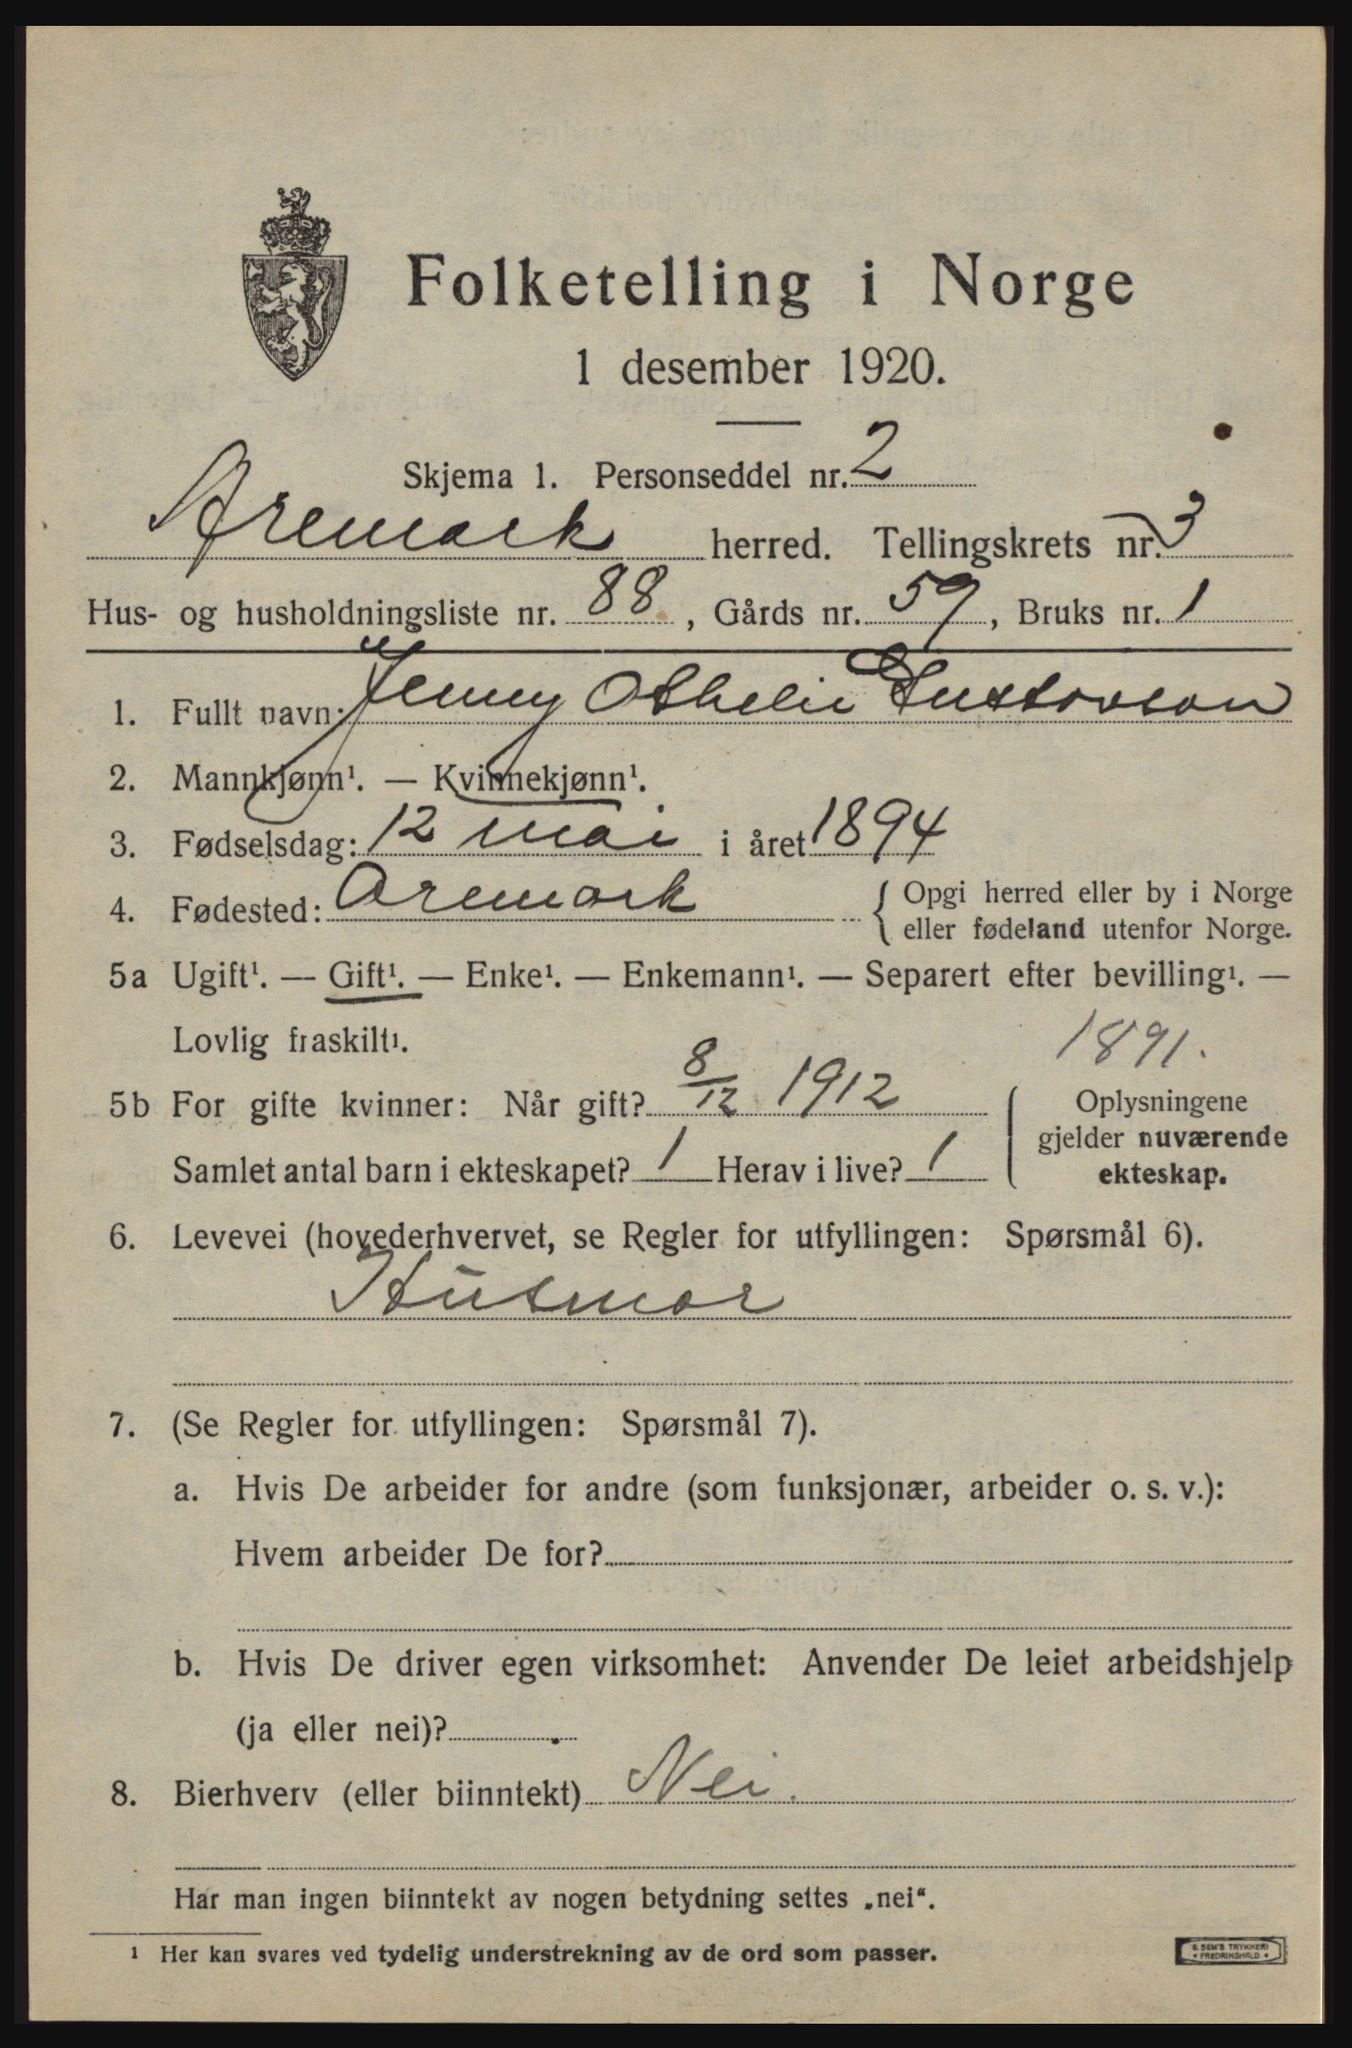 Folketelling i Norge
1 desember 1920.
Skjema 1. Personseddel nr. 2
Aremark herred. Tellingskrets nr. 3
Hus- og husholdningsliste nr. 88, Gårds nr. 59, Bruks nr. 1
1. Fullt navn: Jenny Othelie Gustavson
2. Mannkjønn¹. — Kvinnekjønn¹.
3. Fødselsdag: 12 mai i året 1894
4. Fødested: Aremark { Opgi herred eller by i Norge
eller fødeland utenfor Norge.
5a Ugift¹. — Gift¹. — Enke¹. — Enkemann¹. — Separert efter bevilling¹. —
Lovlig fraskilt¹. 1891.
5b For gifte kvinner: Når gift? 8/12 1912 Oplysningene
gjelder nuværende
Samlet antal barn i ekteskapet? 1 Herav i live? 1 ekteskap.
6. Levevei (hovederhvervet, se Regler for utfyllingen: Spørsmål 6).
Husmor
7. (Se Regler for utfyllingen: Spørsmål 7).
a. Hvis De arbeider for andre (som funksjonær, arbeider o. s. v.):
Hvem arbeider De for?
b. Hvis De driver egen virksomhet: Anvender De leiet arbeidshjelp
(ja eller nei)?
8. Bierhverv (eller biinntekt) Nei.
Har man ingen biinntekt av nogen betydning settes „nei“.
¹ Her kan svares ved tydelig understrekning av de ord som passer.
E. SEM'S TRYKKERI
• FREDRIKSHALD •